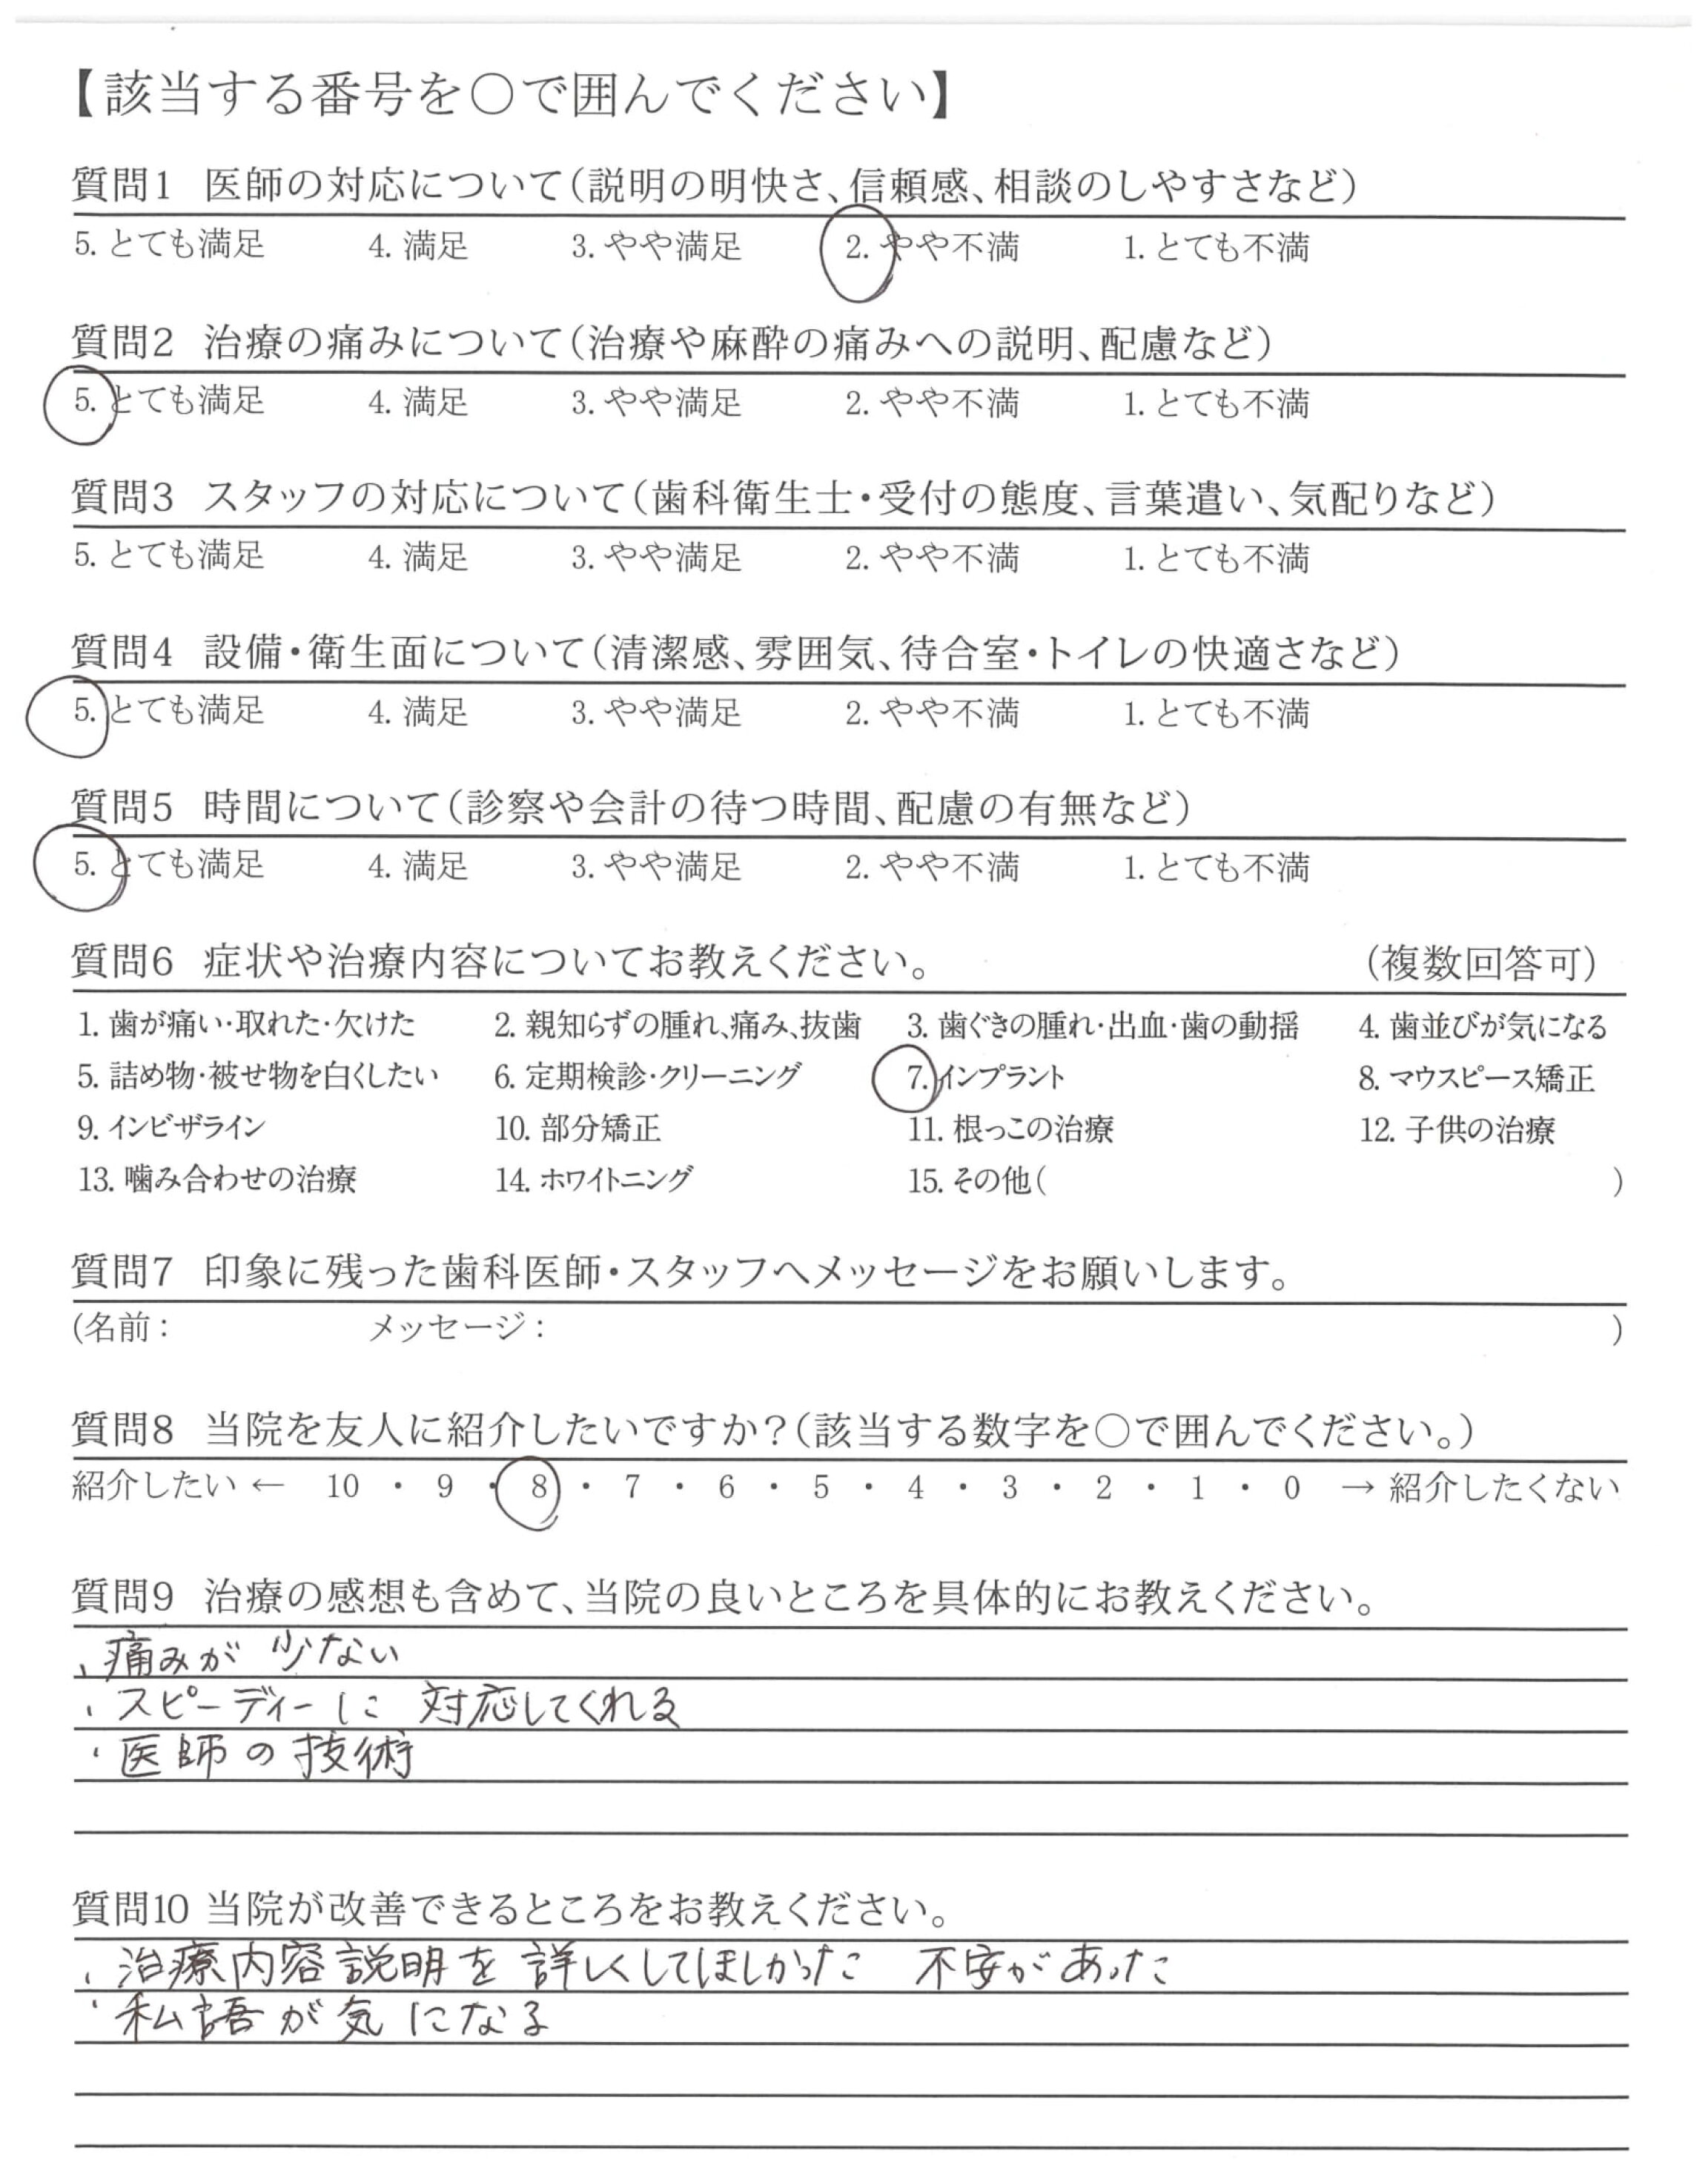 【該当する番号を○で囲んでください】
質問1 医師の対応について（説明の明快さ、信頼感、相談のしやすさなど）
5. とても満足 4. 満足 3. やや満足 2. やや不満 1. とても不満
質問2 治療の痛みについて（治療や麻酔の痛みへの説明、配慮など）
5. とても満足 4. 満足 3. やや満足 2. やや不満 1. とても不満
質問3 スタッフの対応について（歯科衛生士・受付の態度、言葉遣い、気配りなど）
5. とても満足 4. 満足 3. やや満足 2. やや不満 1. とても不満
質問4 設備・衛生面について（清潔感、雰囲気、待合室・トイレの快適さなど）
5. とても満足 4. 満足 3. やや満足 2. やや不満 1. とても不満
質問5 時間について（診察や会計の待つ時間、配慮の有無など）
5. とても満足 4. 満足 3. やや満足 2. やや不満 1. とても不満
質問6 症状や治療内容についてお教えください。 （複数回答可）
1. 歯が痛い・取れた・欠けた 2. 親知らずの腫れ、痛み、抜歯 3. 歯ぐきの腫れ・出血・歯の動揺 4. 歯並びが気になる
5. 詰め物・被せ物を白くしたい 6. 定期検診・クリーニング 7. インプラント 8. マウスピース矯正
9. インビザライン 10. 部分矯正 11. 根っこの治療 12. 子供の治療
13. 噛み合わせの治療 14. ホワイトニング 15. その他（ ）
質問7 印象に残った歯科医師・スタッフへメッセージをお願いします。
（名前： メッセージ： ）
質問8 当院を友人に紹介したいですか？（該当する数字を○で囲んでください。）
紹介したい ← 10 ・ 9 ・ 8 ・ 7 ・ 6 ・ 5 ・ 4 ・ 3 ・ 2 ・ 1 ・ 0 → 紹介したくない
質問9 治療の感想も含めて、当院の良いところを具体的にお教えください。
・痛みが 少ない
・スピーディーに 対応してくれる
・医師の技術
質問10 当院が改善できるところをお教えください。
・治療内容説明を詳しくしてほしかった 不安があった
・私語が気になる